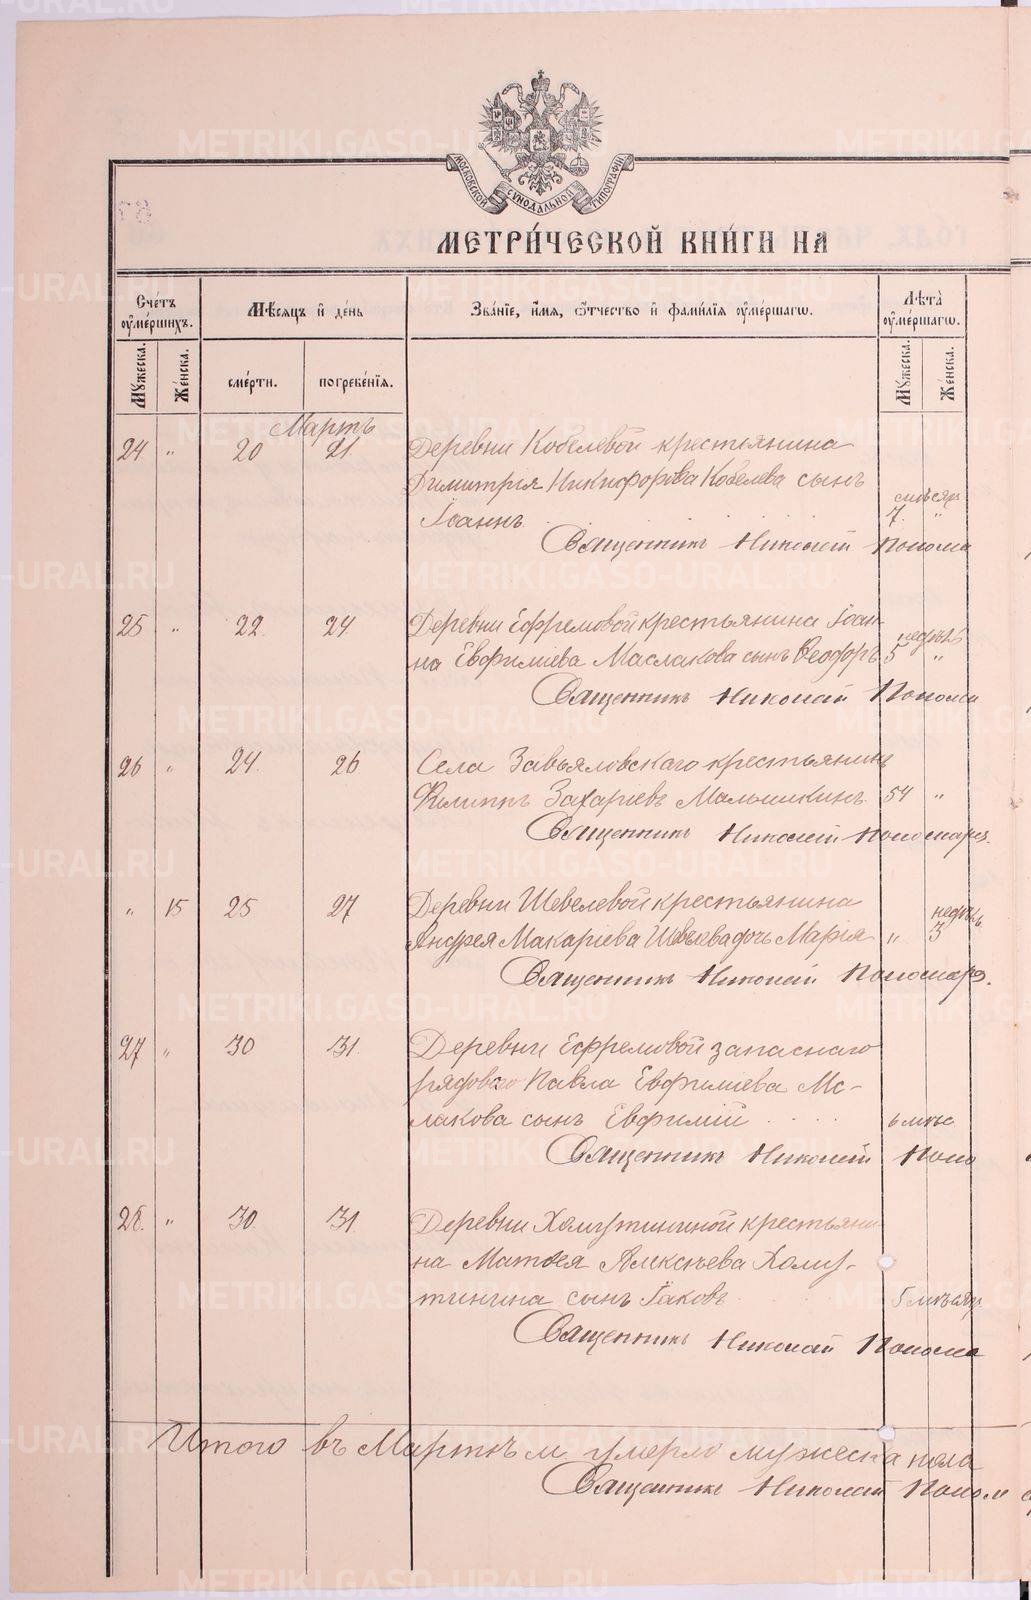 МОСКОВСКОЙ СѴНОДАЛЬНОЙ ТИПОГРАФІИ
МЕТРИ́ЧЕСКОЙ КНИ́ГИ НА
Сче́тъ оу҆ме́ршихъ.
Мѣ́сяцъ и҆ де́нь
Зва́ніе, и҆́мя, ѻ҆́тчество и҆ фами́лія оу҆ме́ршагѡ.
Лѣ́та оу҆ме́ршагѡ.
Мꙋ́жеска.
Же́нска.
сме́рти.
погребе́нія.
Мꙋ́жеска.
Же́нска.
Мартъ
24 " 20 21 Деревни Кобелевой крестьянина
Димитрія Никифорова Кобелева сынъ
Іоаннъ 7 "
Священникъ Николай Понома
25 " 22 24 Деревни Ефремовой крестьянина Іоан-
на Евфиміева Маслакова сынъ Ѳеодоръ 5 недѣль "
Священникъ Николай Понома
26 " 24. 26 Села Завьяловскаго крестьянинъ
Филиппъ Захаріевъ Мальшикинъ 54 "
Священникъ Николай Пономарев.
" 15 25 27 Деревни Шевелевой крестьянина
Андрея Макаріева Шевелева дочь Марія " 3 недѣль
Священникъ Николай Пономарв.
27 " 30 31. Деревни Ефремовой запаснаго
рядового Павла Евфиміева Мс-
лакова сынъ Евфимій 6 мѣс.
Священникъ Николай Поно
28. " 30. 31 Деревни Хомутининой крестьяни-
на Матѳея Алексѣева Хому-
тинина сынъ Іаковъ 5 мѣсяц
Священникъ Николай Понома
Итого въ Мартѣ м. умерло мужеска пола
Священникъ Николай Поном